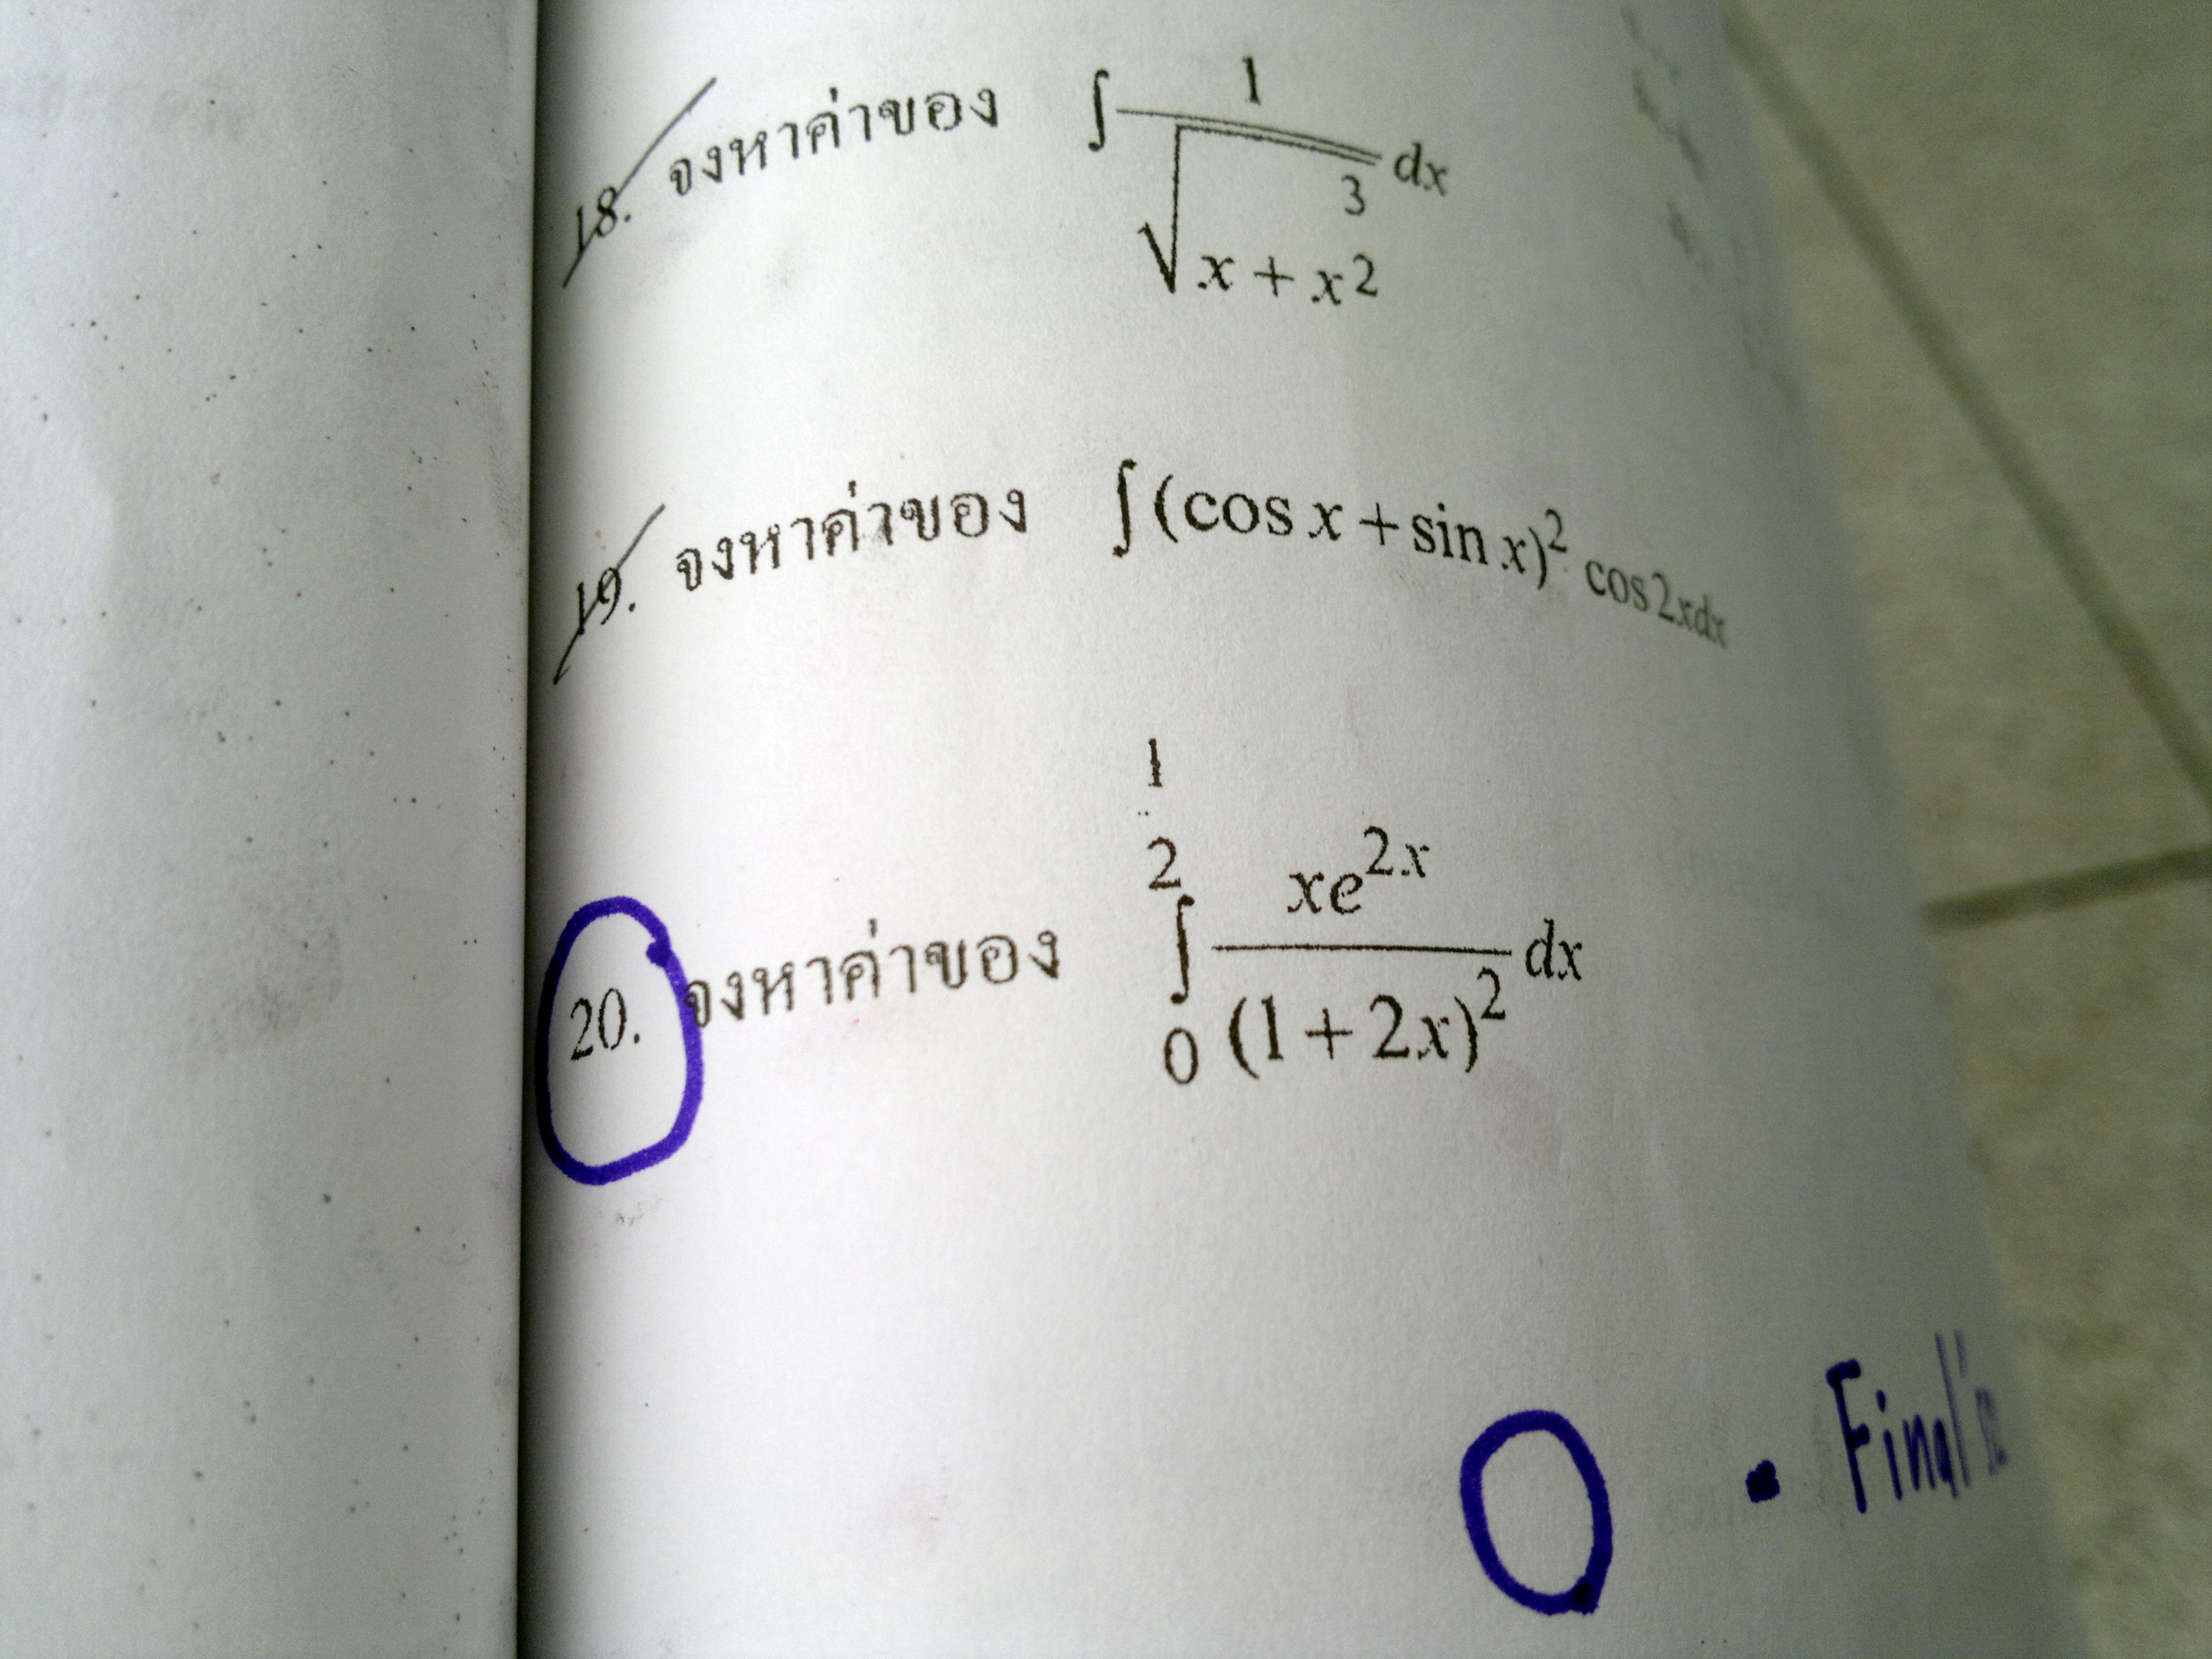 18. จงหาค่าของ ∫ 1/√(x + x^(3/2)) dx
19. จงหาค่าของ ∫(cos x + sin x)² cos2xdx
20. จงหาค่าของ ∫₀^(1/2) xe^(2x)/(1 + 2x)² dx
• Final